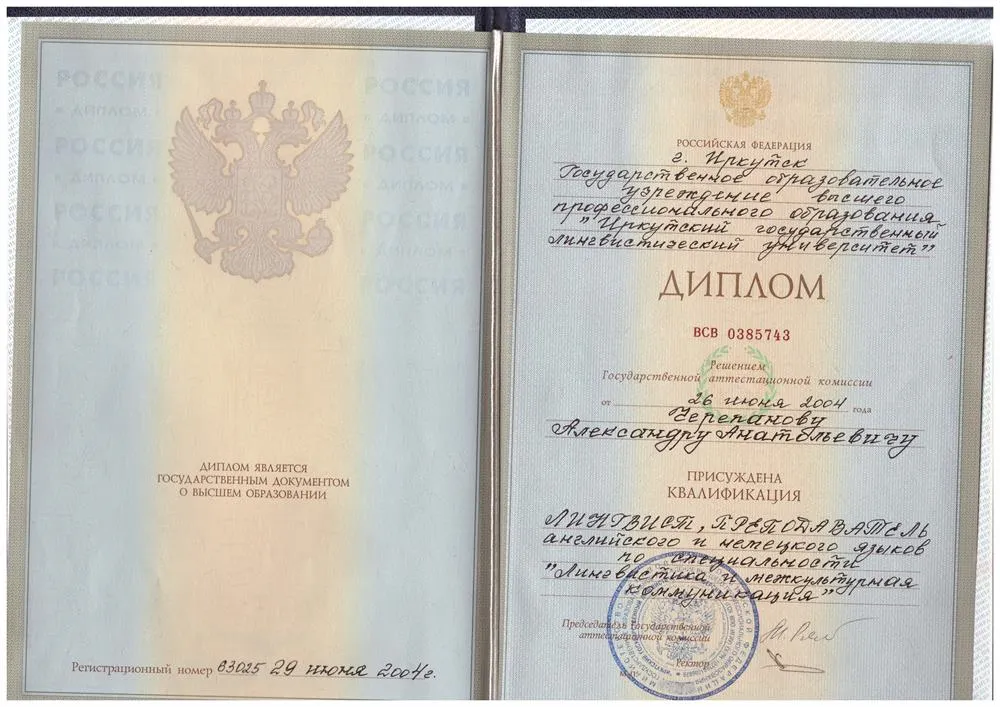 РОССИЯ РОССИЯ
• ДИПЛОМ • • ДИПЛОМ •
РОССИЯ РОССИЯ
• ДИПЛОМ • • ДИПЛОМ •
РОССИЯ РОССИЯ
• ДИПЛОМ • • ДИПЛОМ •
РОССИЯ РОССИЯ
ДИПЛОМ ЯВЛЯЕТСЯ
ГОСУДАРСТВЕННЫМ ДОКУМЕНТОМ
О ВЫСШЕМ ОБРАЗОВАНИИ
Регистрационный номер 63025 29 июня 2004г.
РОССИЙСКАЯ ФЕДЕРАЦИЯ
г. Иркутск
Государственное образовательное
учреждение высшего
профессионального образования
"Иркутский государственный
лингвистический университет"
ДИПЛОМ
ВСВ 0385743
Решением
Государственной аттестационной комиссии
от 26 июня 2004 года
Черепанову
Александру Анатольевичу
ПРИСУЖДЕНА
КВАЛИФИКАЦИЯ
ЛИНГВИСТ, ПРЕПОДАВАТЕЛЬ
английского и немецкого языков
по специальности
"Лингвистика и межкультурная
коммуникация"
Председатель Государственной
аттестационной комиссии
Ректор